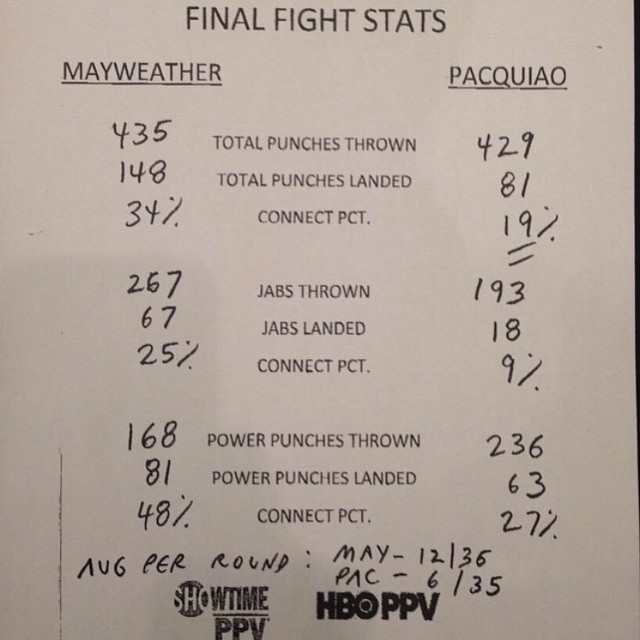 FINAL FIGHT STATS
MAYWEATHER PACQUIAO
435 TOTAL PUNCHES THROWN 429
148 TOTAL PUNCHES LANDED 81
34% CONNECT PCT. 19%
267 JABS THROWN 193
67 JABS LANDED 18
25% CONNECT PCT. 9%
168 POWER PUNCHES THROWN 236
81 POWER PUNCHES LANDED 63
48% CONNECT PCT. 27%
AVG PER ROUND: MAY- 12/36
PAC - 6/35
SHOWTIME HBO PPV
PPV